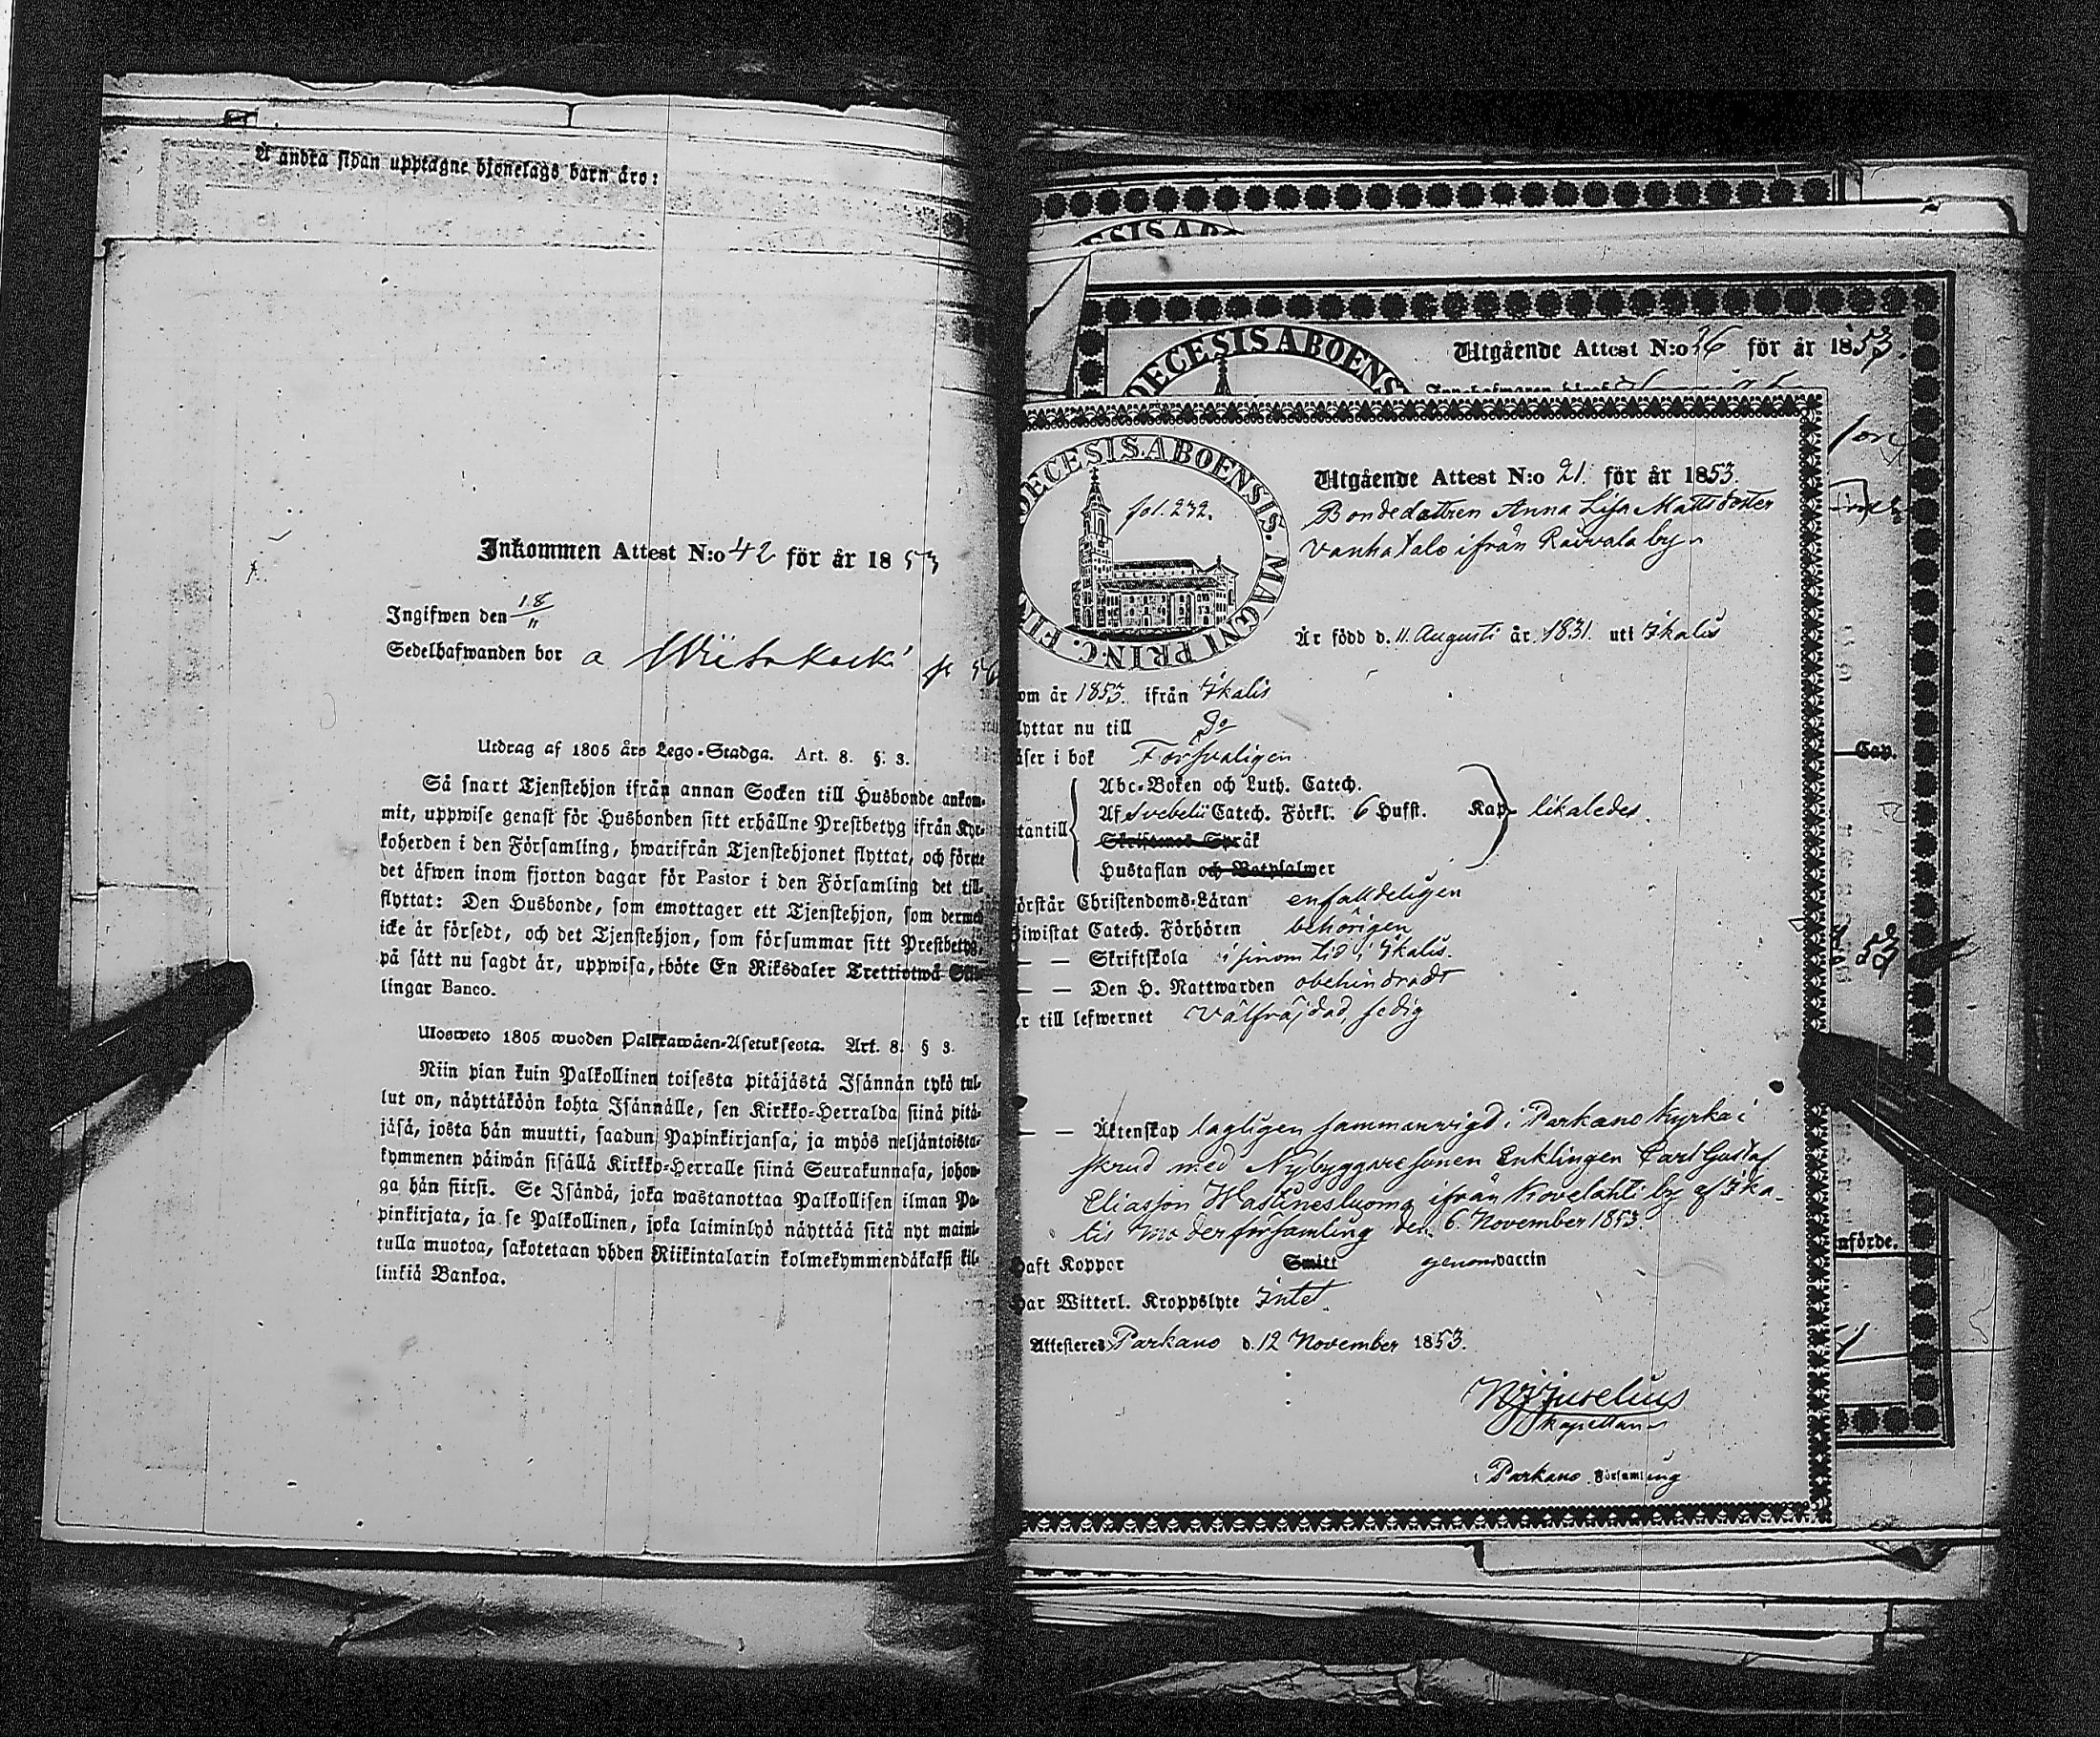 Å andra sidan upptagne hjonelags barn äro:
Inkommen Attest N:o 42 för år 1853
Ingifwen den 18/11
Sedelhafwanden bor a
Utdrag af 1805 års Lego-Stadga. Art. 8. §. 3.
Så snart Tjenstehjon ifrån annan Socken till Husbonde ankom-
mit, uppwise genast för Husbonden sitt erhållne Prestbetyg ifrån Kyr-
koherden i den Församling, hwarifrån Tjenstehjonet flyttat, och förete
det äfwen inom fjorton dagar för Pastor i den Församling det till-
flyttat: Den Husbonde, som emottager ett Tjenstehjon, som dermed
icke är försedt, och det Tjenstehjon, som försummar sitt Prestbetyg,
på sätt nu sagdt är, uppwisa, böte En Riksdaler Trettiotwå Skil-
lingar Banco.
Ulosweto 1805 wuoden Palkkawäen-Asetuksesta. Art. 8. § 3.
Niin pian kuin Palkollinen toisesta pitäjästä Isännän tykö tul-
lut on, näyttäköön kohta Isännälle, sen Kirkko-Herralda siinä pitä-
jäsä, josta hän muutti, saadun Papinkirjansa, ja myös neljäntoista-
kymmenen päiwän sisällä Kirkko-Herralle siinä Seurakunnasa, johon-
ga hän siirsi. Se Isändä, joka wastanottaa Palkollisen ilman Pa-
pinkirjata, ja se Palkollinen, joka laiminlyö näyttää sitä nyt maini-
tulla muotoa, sakotetaan yhden Riikintalarin kolmekymmendäkaksi kil-
linkiä Bankoa.
DECESIS ABOENS
Utgående Attest N:o 16 för år 1853.
DECESIS. ABOENSIS. MAGNI PRINC. FIN
fol. 232.
Utgående Attest N:o 21. för år 1853.
Bondedottren Anna Lisa Mattsdotter
Vanhatalo ifrån Raivala by
Är född d. 11 Augusti år 1831. uti Ikalis
om år 1853. ifrån Ikalis
lyttar nu till Do
äser i bok Försvarligen
täntill
Abc-Boken och Luth. Catech.
Af Svebelii Catech. Förkl. 6 Hufst. Kap. likaledes.
Skriftenes Språk
Hustaflan och Botpsalmer
örstår Christendoms-Läran enfaldeligen
iwistat Catech. Förhören behörigen
— — Skriftskola i sinom tid i Ikalis.
— — Den H. Nattwarden obehindradt
r till lefwernet välfräjdad, ledig
— — Äktenskap lagligen sammanvigd i Parkano Kyrka i
skrud med Nybyggaresonen Enklingen Carl Gustaf
Eliasson ifrån Kovelahti by af Ika-
lis Moderförsamling den 6 November 1853.
haft Koppor Smitt genom vaccin
har Witterl. Kroppslyte Intet.
Attesteres Parkano d. 12 November 1853.
Juselius
Kapellan
i Parkano Församling
Cap.
nförde.